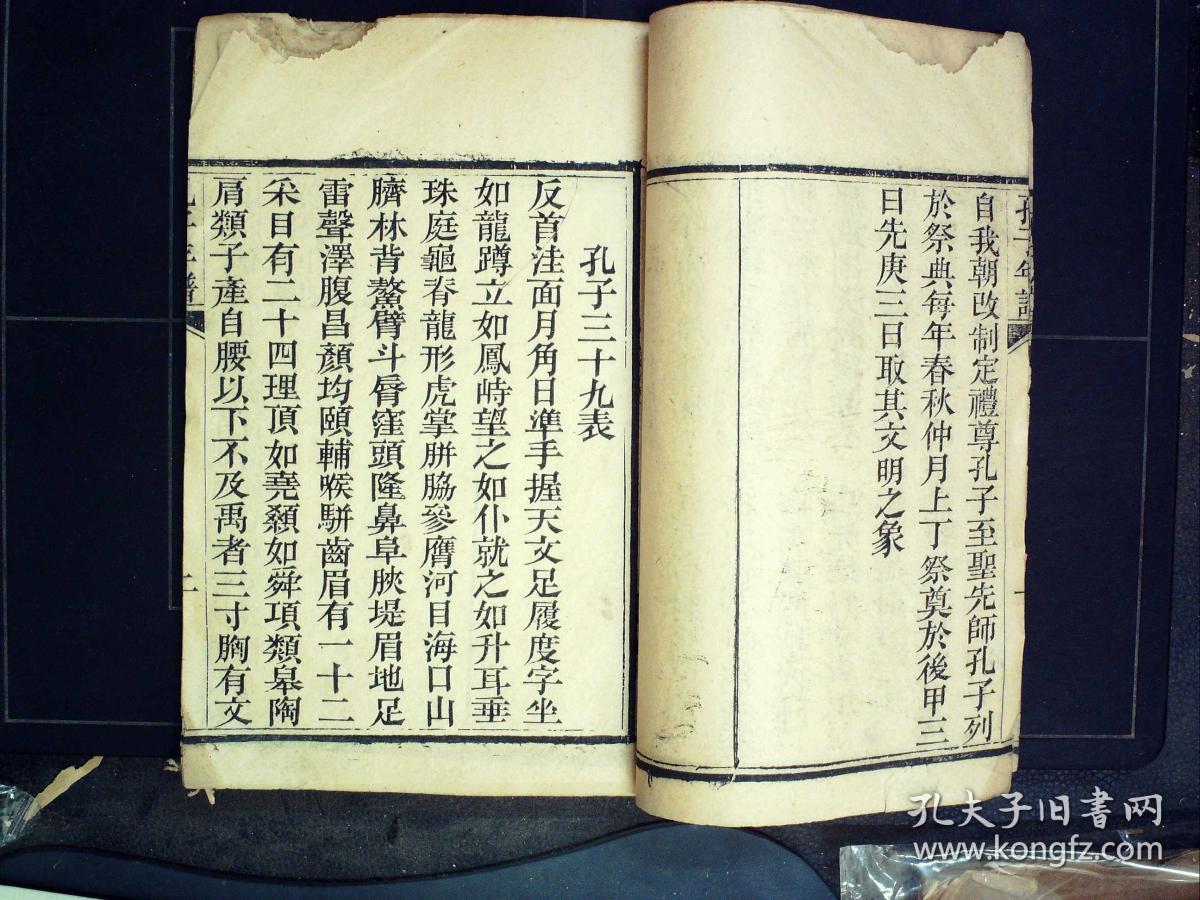 孔子年譜
自我朝改制定禮尊孔子至聖先師孔子列
於祭典每年春秋仲月上丁祭奠於後甲三
日先庚三日取其文明之象
孔子三十九表
反首洼面月角日準手握天文足履度字坐
如龍蹲立如鳳峙望之如仆就之如升耳垂
珠庭龜脊龍形虎掌胼脇參膺河目海口山
臍林背鰲臂斗脣窪頭隆鼻阜脥堤眉地足
雷聲澤腹昌顏均頤輔喉駢齒眉有一十二
采目有二十四理頂如堯顙如舜項類皋陶
肩類子產自腰以下不及禹者三寸胸有文
孔子年譜
二
孔夫子旧書网
www.kongfz.com